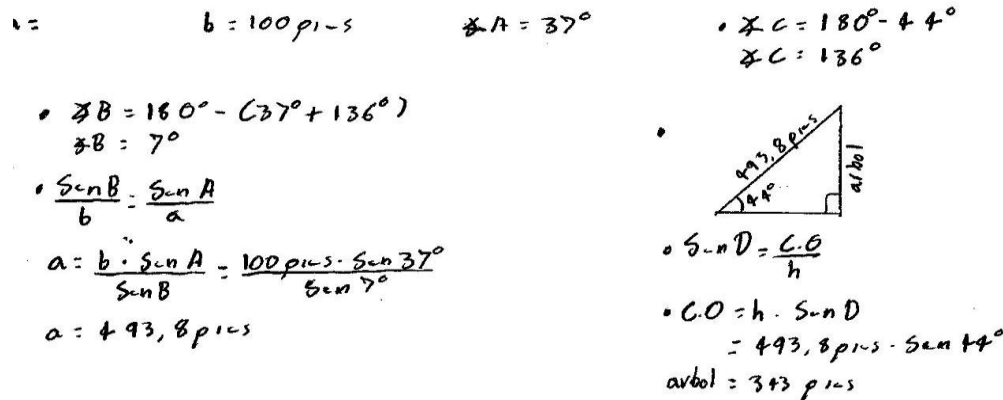 b = 100 pies
∡A = 37°
• ∡C = 180° - 44°
∡C = 136°
• ∡B = 180° - (37° + 136°)
∡B = 7°
• Sen B / b = Sen A / a
a = b · Sen A / Sen B = 100 pies · Sen 37° / Sen 7°
a = 493,8 pies
493,8 pies
44°
arbol
• Sen D = C.O / h
• C.O = h · Sen D
= 493,8 pies · Sen 44°
arbol = 343 pies